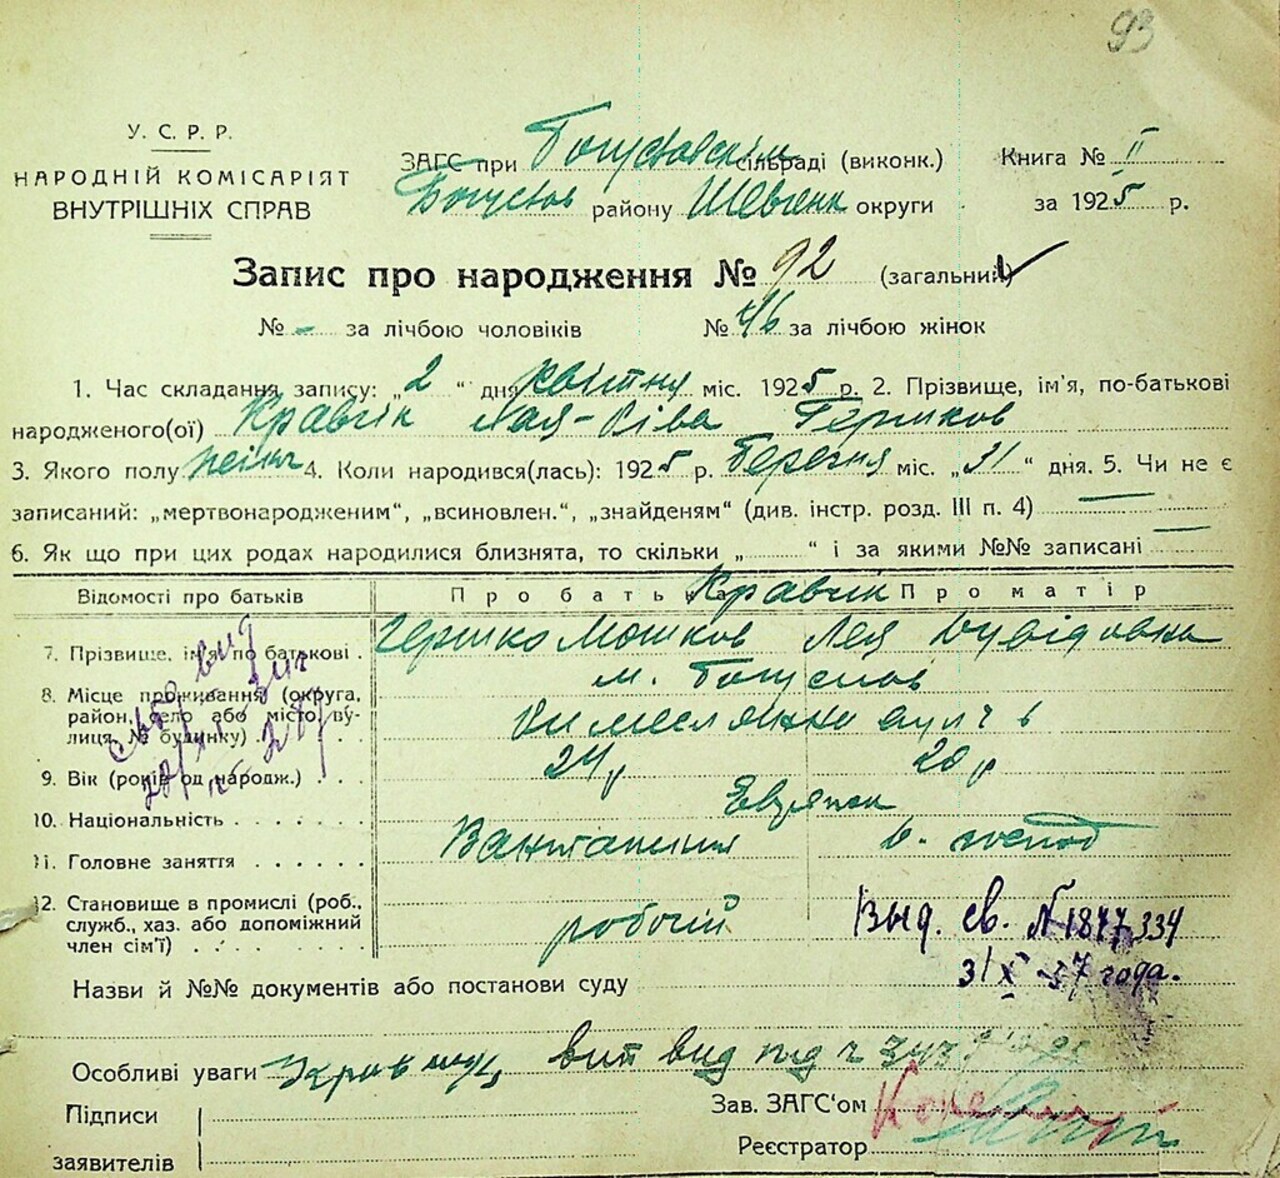 93
У. С. Р. Р.
НАРОДНІЙ КОМІСАРІЯТ
ВНУТРІШНІХ СПРАВ
ЗАГС при Богуславскім сільраді (виконк.)
Богуслав району Шевченк округи
Книга № II
за 1925 р.
Запис про народження № 92 (загальний)
№ – за лічбою чоловіків № 46 за лічбою жінок
1. Час складання запису: „2 “ дня квітня міс. 1925 р. 2. Прізвище, ім'я, по-батькові
народженого(ої) Кравчік Лая-Ріва Гершков
3. Якого полу жіноч 4. Коли народився(лась): 1925 р. Березня міс. „31 “ дня. 5. Чи не є
записаний: „мертвонародженим“, „всиновлен.“, „знайденям“ (див. інстр. розд. III п. 4) —
6. Як що при цих родах народилися близнята, то скільки „ “ і за якими №№ записані —
Відомості про батьків Про батька Про матір
Кравчік
7. Прізвище, ім'я, по батькові . Гершко Мошков Лея Дувідовна
8. Місце проживання (округа, район, село або місто, вулиця, № будинку) . м. Богуслав
9. Вік (років од народж.) . . . 24 р 20 р
10. Національність . . . . . . .
11. Головне заняття . . . . . .
12. Становище в промислі (роб., служб., хаз. або допоміжний член сім'ї) . . . . робочій
Выд. св. N 1847334
31 X -37 года.
Назви й №№ документів або постанови суду
Особливі уваги вит вид під ч
Підписи
заявителів
Зав. ЗАГС'ом
Реєстратор